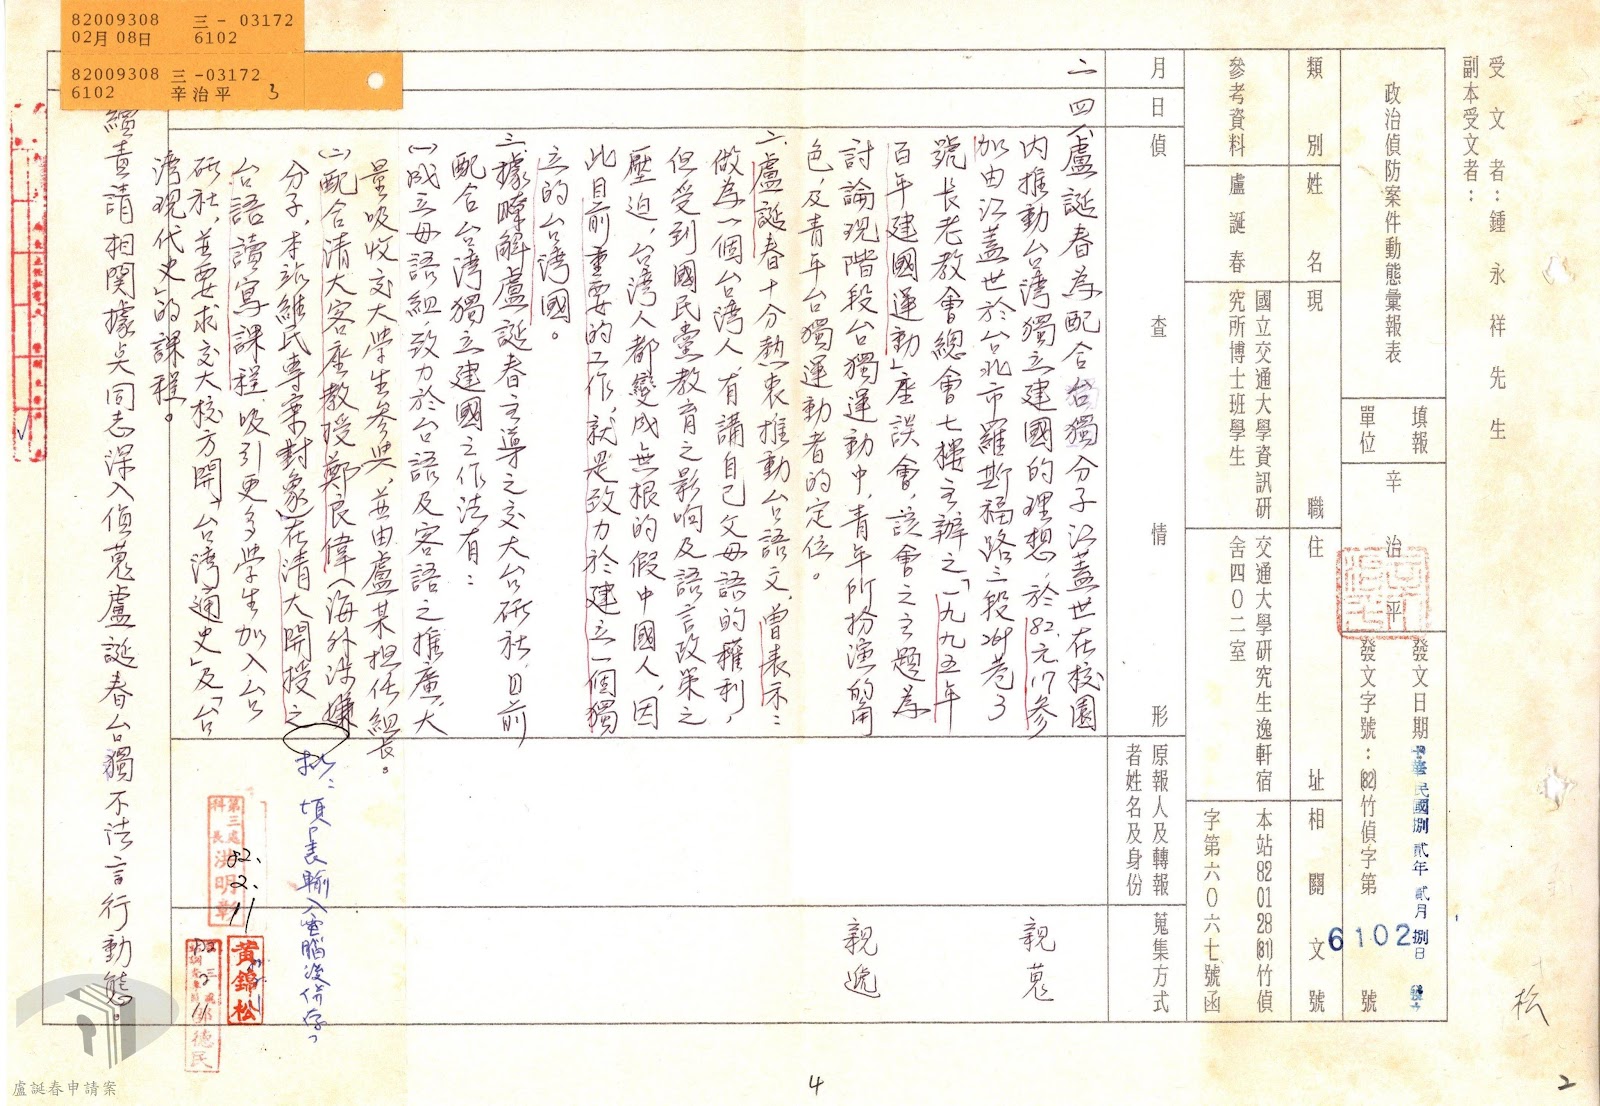 82009308 三-03172
02月08日 6102
82009308 三-03172
6102 辛治平 3
受文者：鍾永祥先生
副本受文者：
政治偵防案件動態彙報表
填報單位
辛治平
發文日期
中華民國捌貳年貳月捌日
發文字號：(82)竹偵字第 6102 號
類別
姓名
現職
住址
相關文號
參考資料
盧誕春
國立交通大學資訊研
究所博士班學生
交通大學研究生逸軒宿
舍四０二室
本站820128(81)竹偵
字第六０六七號函
月
日
偵查情形
原報人及轉報
者姓名及身份
蒐集方式
二
四
一、盧誕春為配合台獨分子江蓋世在校園
內推動台湾獨立建國的理想，於82.元.17.參
加由江蓋世於台北市羅斯福路三段264巷3
號長老教會總會七樓主辦之「一九九五年
百年建國運動」座談會，該會之主題為
討論現階段台獨運動中，青年所扮演的角
色，及青年台獨運動者的定位。
二、盧誕春十分熱衷推動台語文，曾表示：
做為一個台湾人，有講自己父母語的權利，
但受到國民黨教育之影响及語言政策之
壓迫，台湾人都變成無根的假中國人，因
此目前重要的工作，就是致力於建立一個獨
立的台湾國。
三、據瞭解盧誕春主導之交大台研社，目前
配合台湾獨立建國之作法有：
(一)成立母語組，致力於台語及客語之推廣，大
量吸收交大學生參與，並由盧某担任組長。
(二)配合清大客座教授鄭良偉（海外涉嫌
分子，本站維民專案對象）在清大開授之
台語讀寫課程，吸引更多學生加入台
研社，並要求交大校方開「台湾通史」及「台
湾現代史」的課程。
親蒐
親遞
繼責請相関據点同志深入偵蒐盧誕春台獨不法言行動態。
批：頃表輸入電腦後併存。
第三處
科長洪明彰
82.2.11
黃錦松
松
4
2
盧誕春申請案